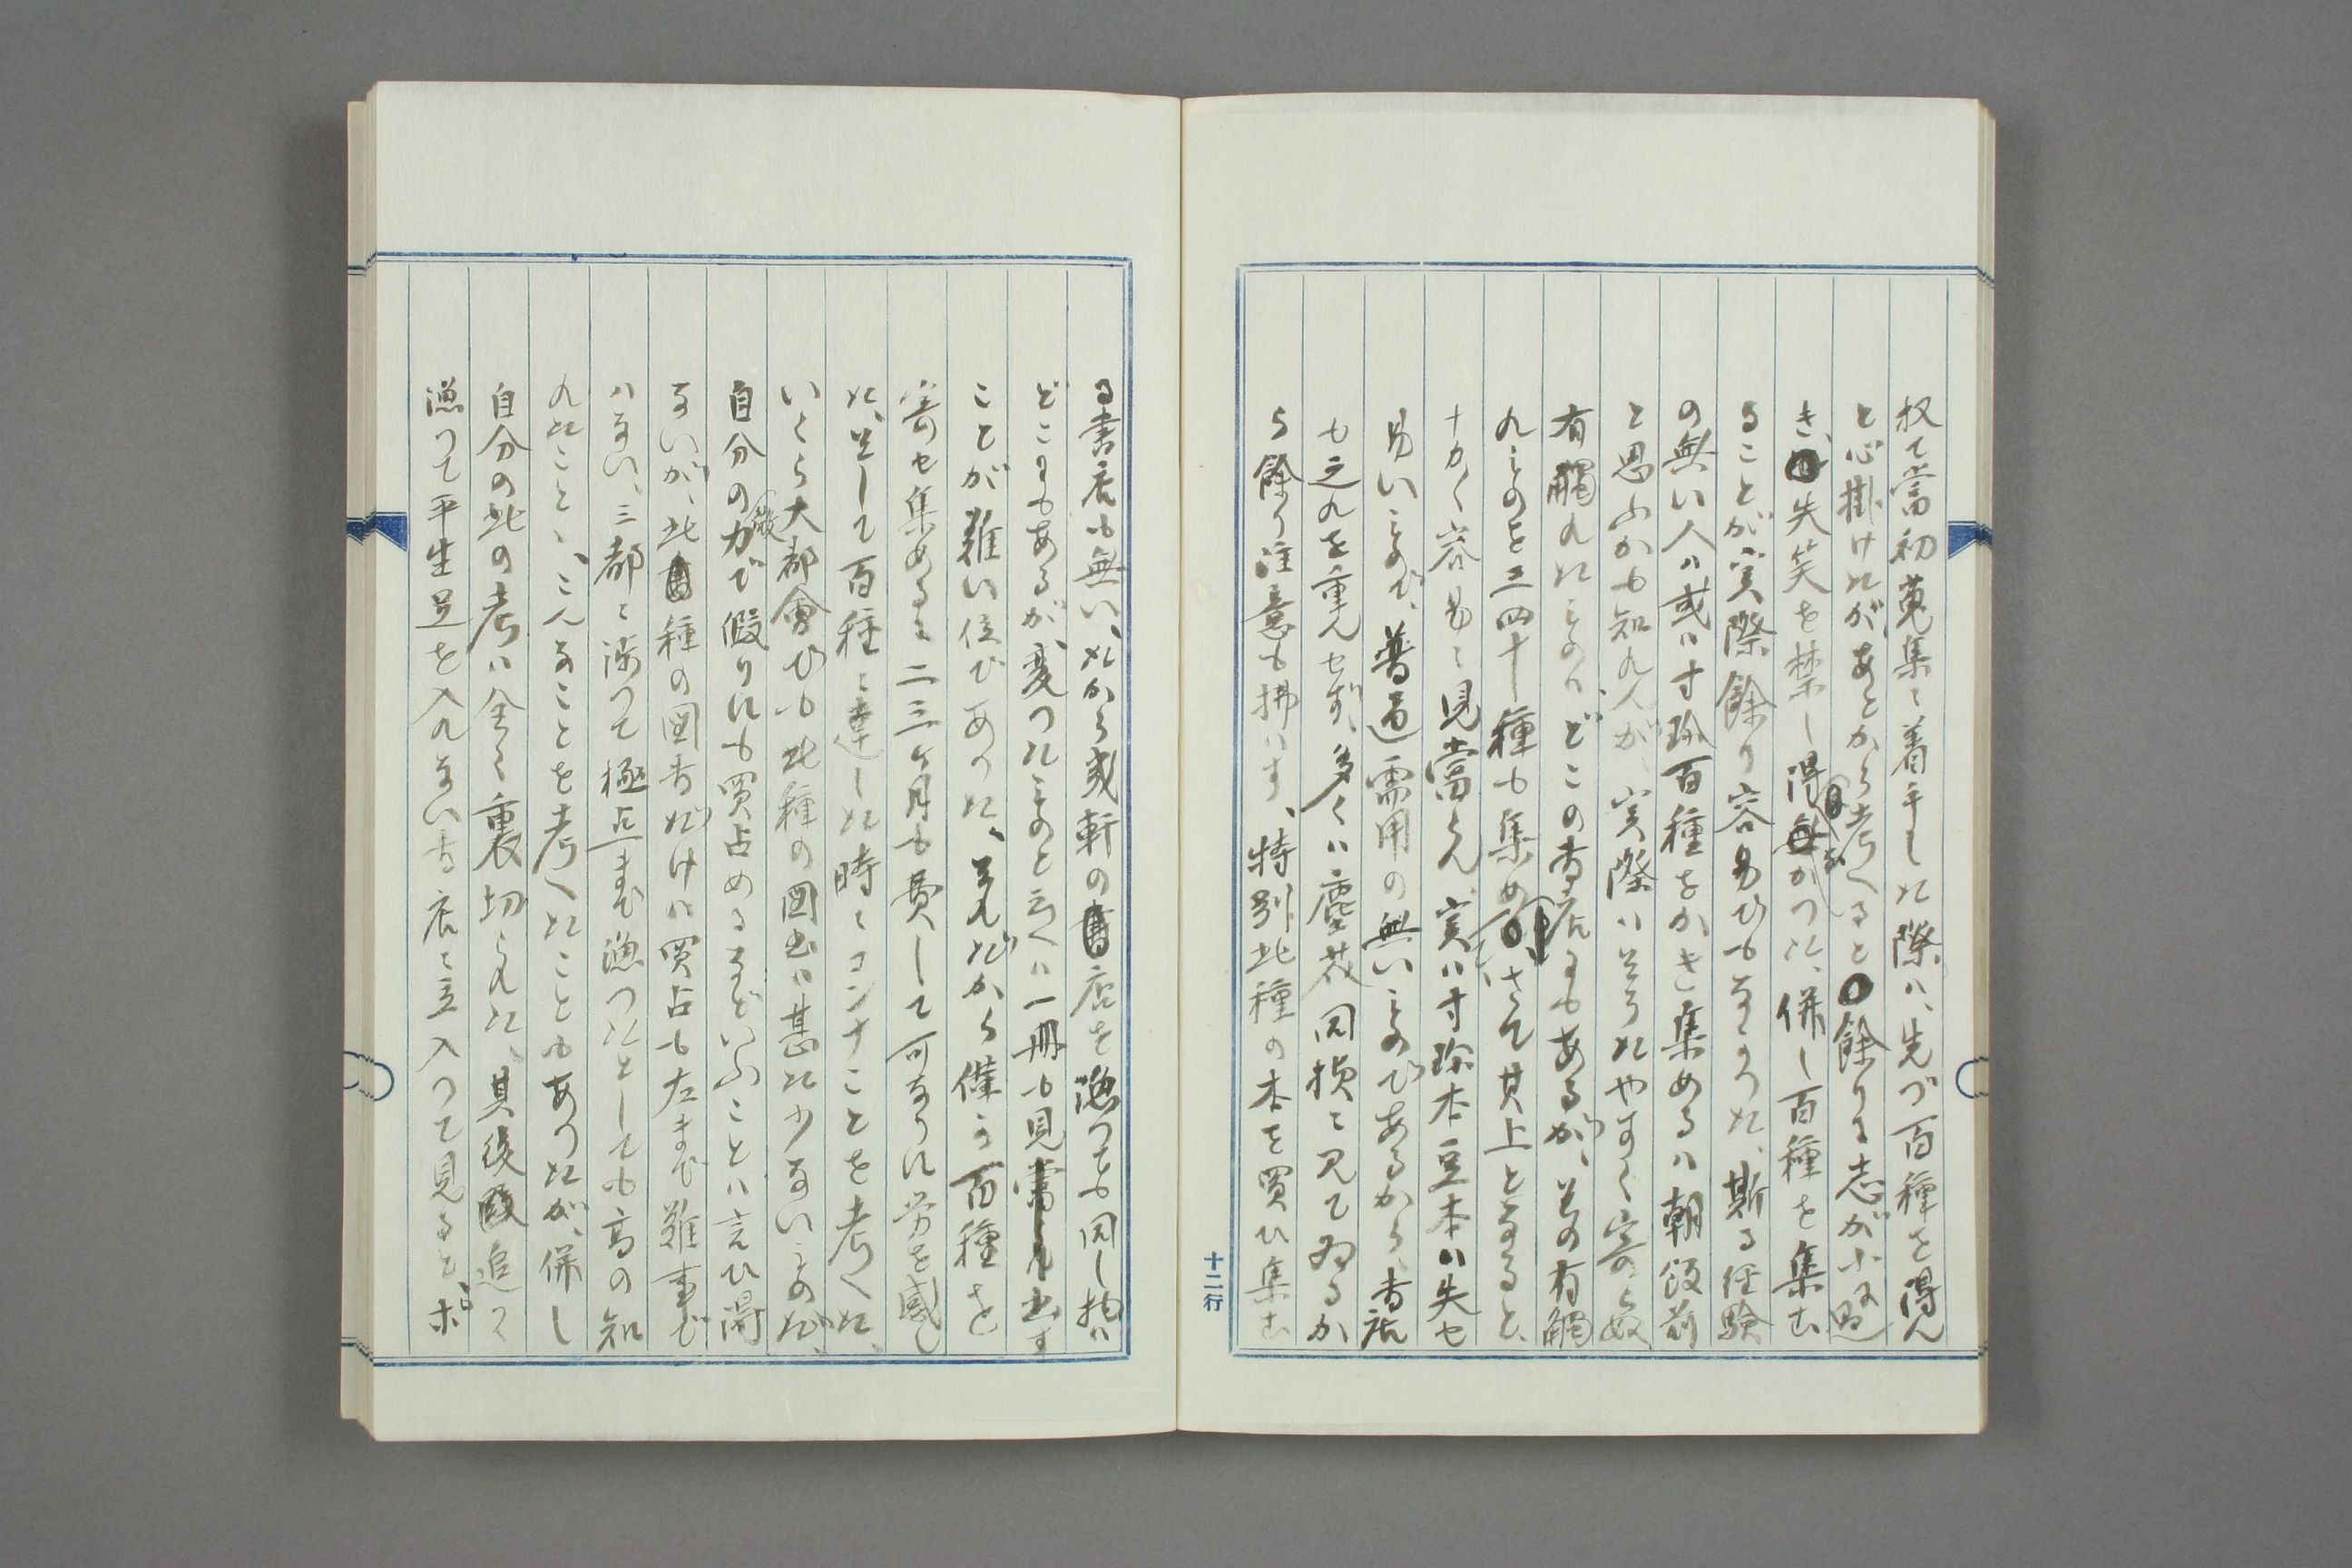 扨て當初蒐集に着手した際ハ、先づ百種を得ん
と心掛けたが、あとから考へると餘りに志が小に過
き、失笑を禁し得なかつた、併し百種を集む
ることが実際餘り容易でもなかつた、斯る経験
の無い人ハ或ハ寸珍百種をかき集めるハ朝飯前
と思ふかも知れんが、実際ハそうたやすく寄らぬ
有觸れたものハ、どこの書店にもあるが、其の有觸
れものを三四十種も集めて、さて其上となると、
十カく容易に見當らん、実ハ寸珍本豆本ハ失せ
易いもので、普通需用の無いものであるから、書店
も之れを重んせず、多くハ塵芥同様に見てゐるか
ら餘り注意も拂ハす、特別此種の本を買ひ集む
十二行
る書店も無い、だから或軒の書店を漁つても同し物ハ
どこにもあるが、変つたものと云へハ一冊も見當らす
ことが難い位であつた、それだから僅か百種を
寄せ集めるに二三ヶ月も費して可なりに労を感し
た、そして百種に達した時にコンナことを考へた、
いくら大都會でも此種の図書ハ甚た少ないものだ、
自分の微力で假りにも買占めるなどいふことハ言ひ得
ないが、此種の図書だけハ買占も左まで難事で
ハない、三都に渉つて極点まで漁つたとしても高の知
れたこと、こんなことを考へたこともあつたが、併し
自分の此の考ハ全く裏切られた、其後追々
漁つて平生足を入れない書店に立入つて見ると、ポ